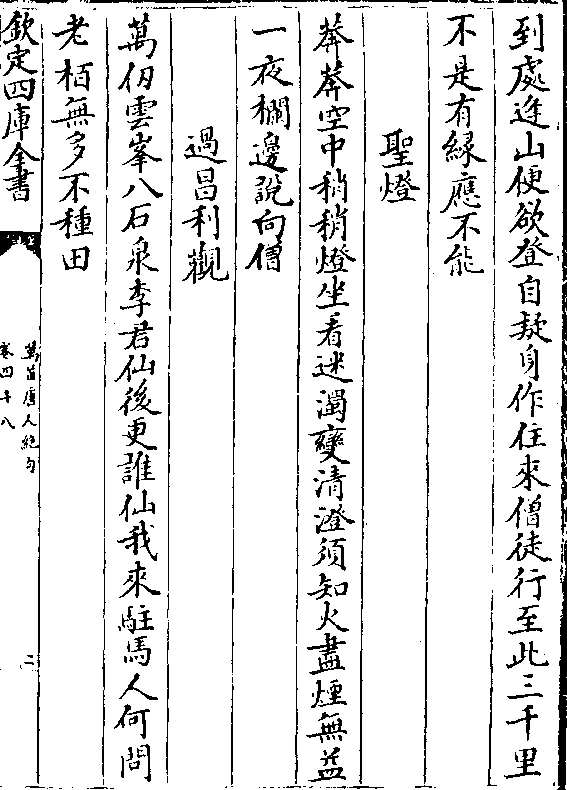 到處逢山便欲登自疑身作住來僧徒行至此三千里
不是有緣應不能
聖燈
莽莽空中稍稍燈坐看迷濁變清澄須知火盡煙無益
一夜欄邊說向僧
過昌利觀
萬仞雲峯八石泉李君仙後更誰仙我來駐馬人何問
老栢無多不種田
欽定四庫全書
萬首唐人絶句
卷四十八
二